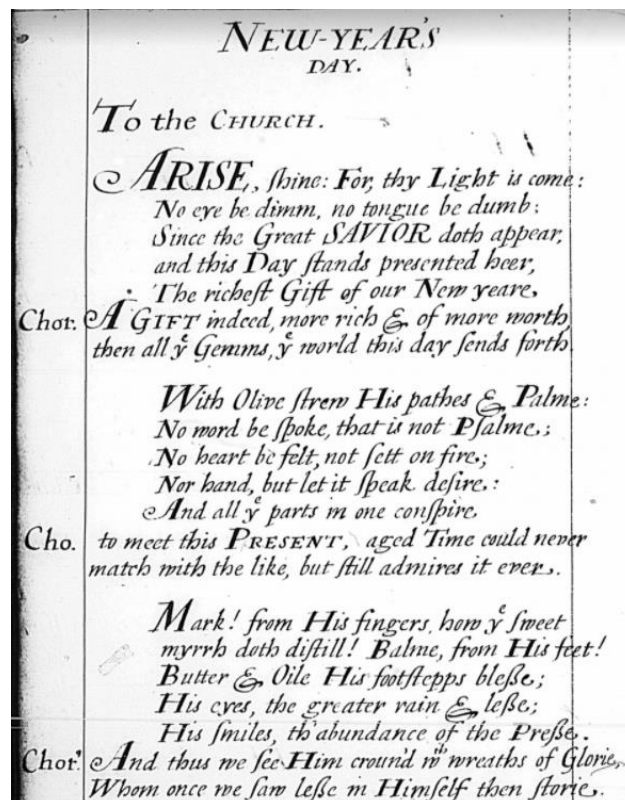 NEW-YEAR'S
DAY.
To the CHURCH.
ARISE, ſhine: For, thy Light is come:
No eye be dimm, no tongue be dumb:
Since the Great SAVIOR doth appear,
and this Day ſtands preſented heer,
The richeſt Gift of our New yeare,
Chor. A GIFT indeed, more rich & of more worth,
then all yͤ Gemms, yͤ world this day ſends forth.
With Olive ſtrew His pathes & Palme:
No word be ſpoke, that is not Pſalme;
No heart be felt, not ſett on fire;
Nor hand, but let it ſpeak deſire:
And all yͤ parts in one conſpire
Cho. to meet this PRESENT, aged Time could never
match with the like, but ſtill admires it ever.
Mark! from His fingers, how yͤ ſweet
myrrh doth diſtill! Balme, from His feet!
Butter & Oile His footſtepps bleſse;
His eyes, the greater rain & leſse;
His ſmiles, th'abundance of the Preſse.
Chor. And thus we ſee Him croun'd wᵗʰ wreaths of Glorie,
Whom once we ſaw leſse in Himſelf then ſtorie.